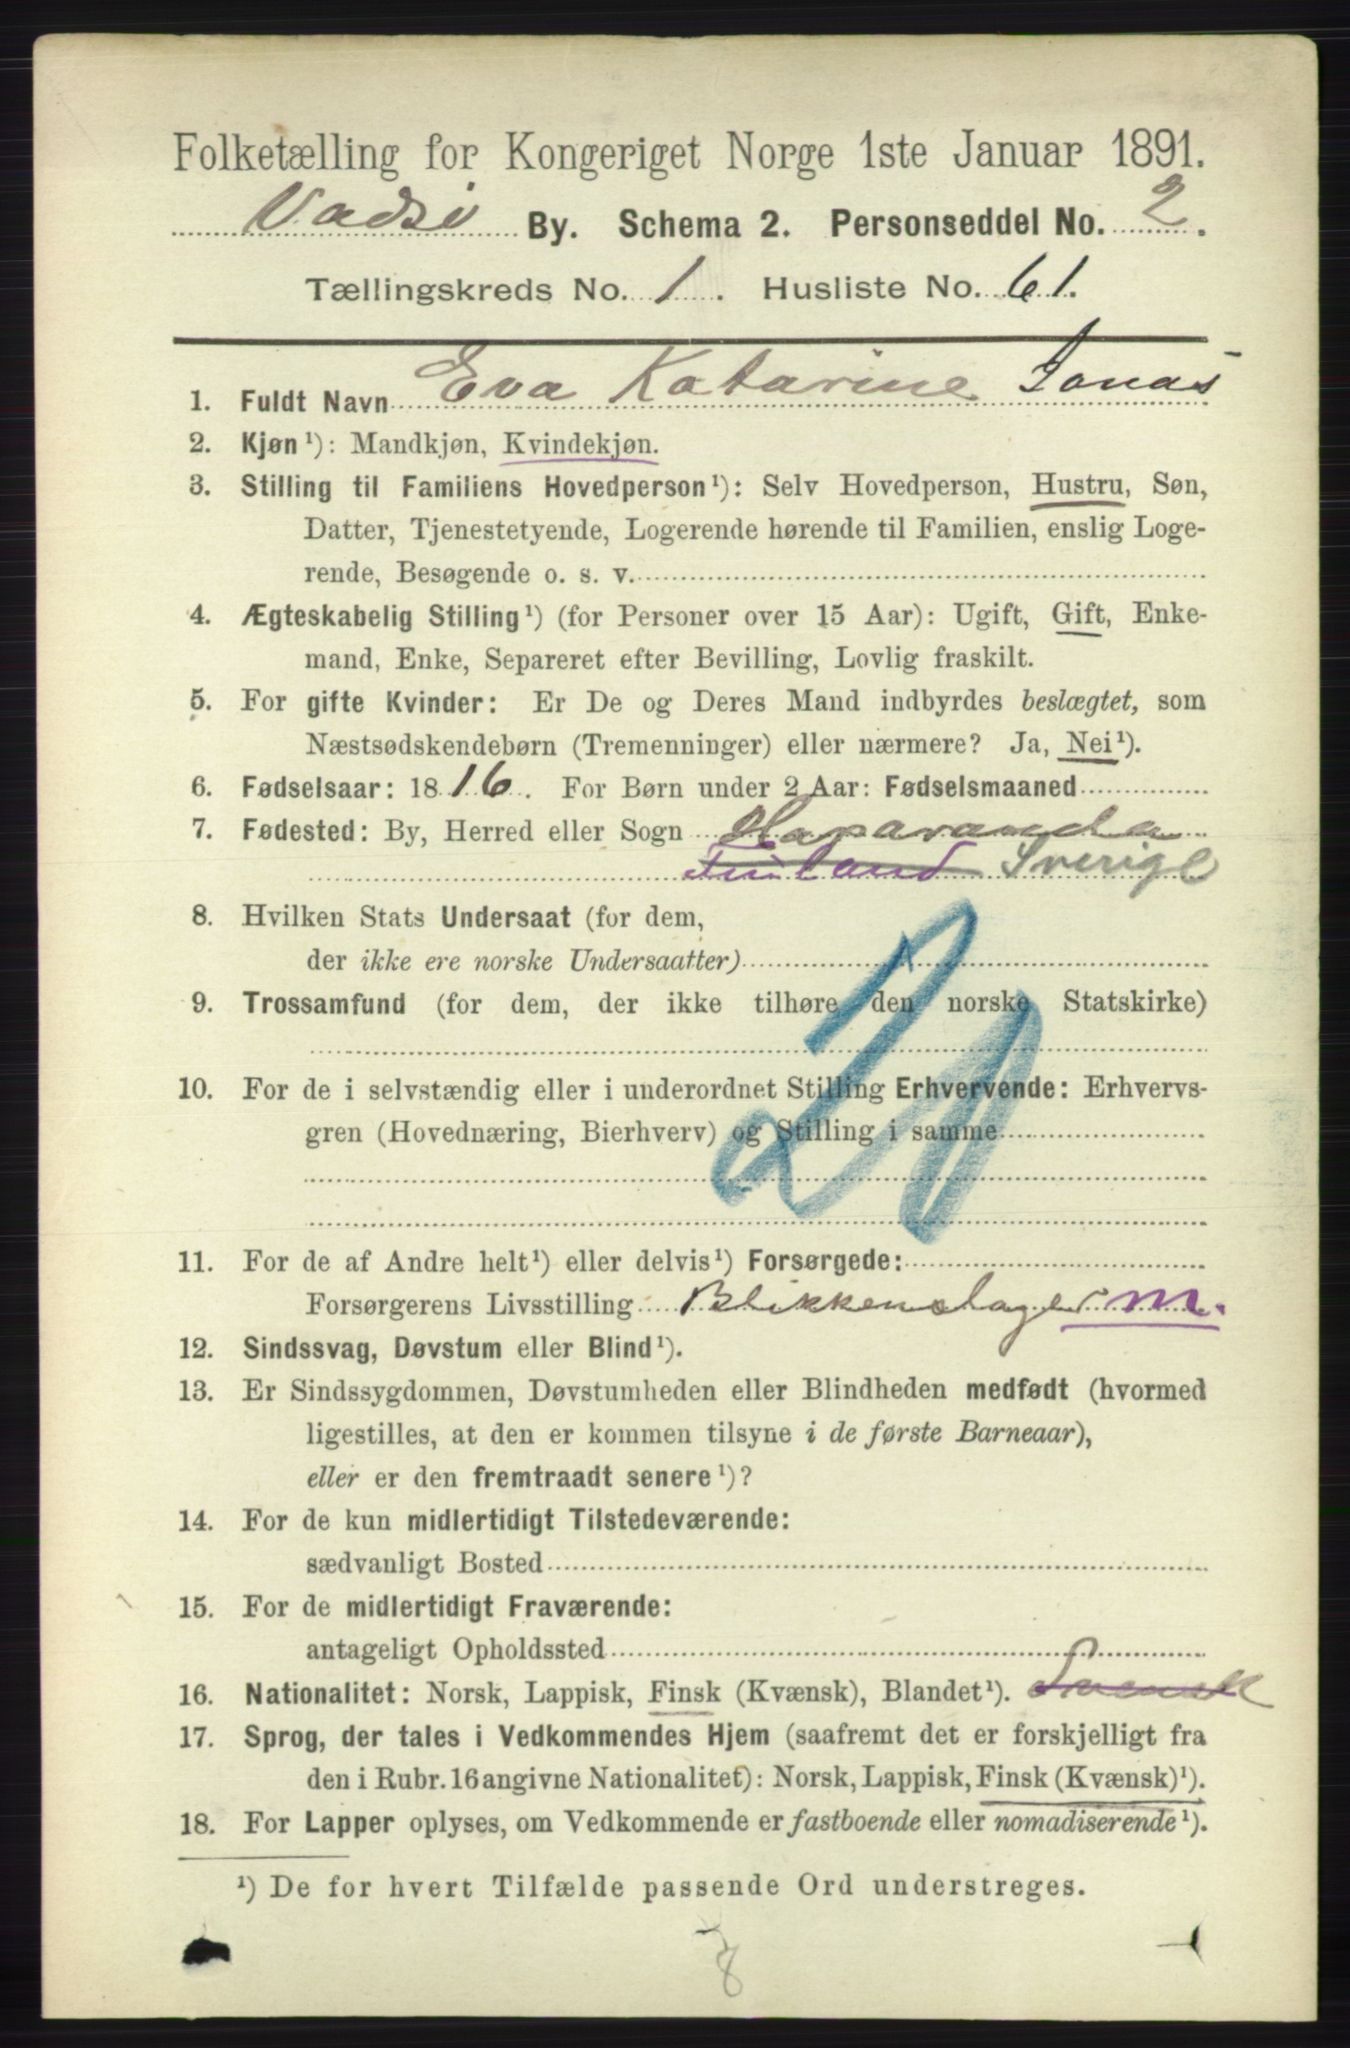 Folketælling for Kongeriget Norge 1ste Januar 1891.
Vadsö By. Schema 2. Personseddel No. 2.
Tællingskreds No. 1. Husliste No. 61.
1. Fuldt Navn Eva Katarine Jonas
2. Kjøn¹): Mandkjøn, Kvindekjøn.
3. Stilling til Familiens Hovedperson¹): Selv Hovedperson, Hustru, Søn,
Datter, Tjenestetyende, Logerende hørende til Familien, enslig Loge-
rende, Besøgende o. s. v.
4. Ægteskabelig Stilling¹) (for Personer over 15 Aar): Ugift, Gift, Enke-
mand, Enke, Separeret efter Bevilling, Lovlig fraskilt.
5. For gifte Kvinder: Er De og Deres Mand indbyrdes beslægtet, som
Næstsødskendebørn (Tremenninger) eller nærmere? Ja, Nei¹).
6. Fødselsaar: 1816. For Børn under 2 Aar: Fødselsmaaned
7. Fødested: By, Herred eller Sogn Haparanda
Finland Sverige
8. Hvilken Stats Undersaat (for dem,
der ikke ere norske Undersaatter)
9. Trossamfund (for dem, der ikke tilhøre den norske Statskirke)
10. For de i selvstændig eller i underordnet Stilling Erhvervende: Erhvervs-
gren (Hovednæring, Bierhverv) og Stilling i samme
20
11. For de af Andre helt¹) eller delvis¹) Forsørgede:
Forsørgerens Livsstilling Blikkenslager m.
12. Sindssvag, Døvstum eller Blind¹).
13. Er Sindssygdommen, Døvstumheden eller Blindheden medfødt (hvormed
ligestilles, at den er kommen tilsyne i de første Barneaar),
eller er den fremtraadt senere¹)?
14. For de kun midlertidigt Tilstedeværende:
sædvanligt Bosted
15. For de midlertidigt Fraværende:
antageligt Opholdssted
16. Nationalitet: Norsk, Lappisk, Finsk (Kvænsk), Blandet¹). Svensk
17. Sprog, der tales i Vedkommendes Hjem (saafremt det er forskjelligt fra
den i Rubr. 16 angivne Nationalitet): Norsk, Lappisk, Finsk (Kvænsk)¹).
18. For Lapper oplyses, om Vedkommende er fastboende eller nomadiserende¹).
¹) De for hvert Tilfælde passende Ord understreges.
8